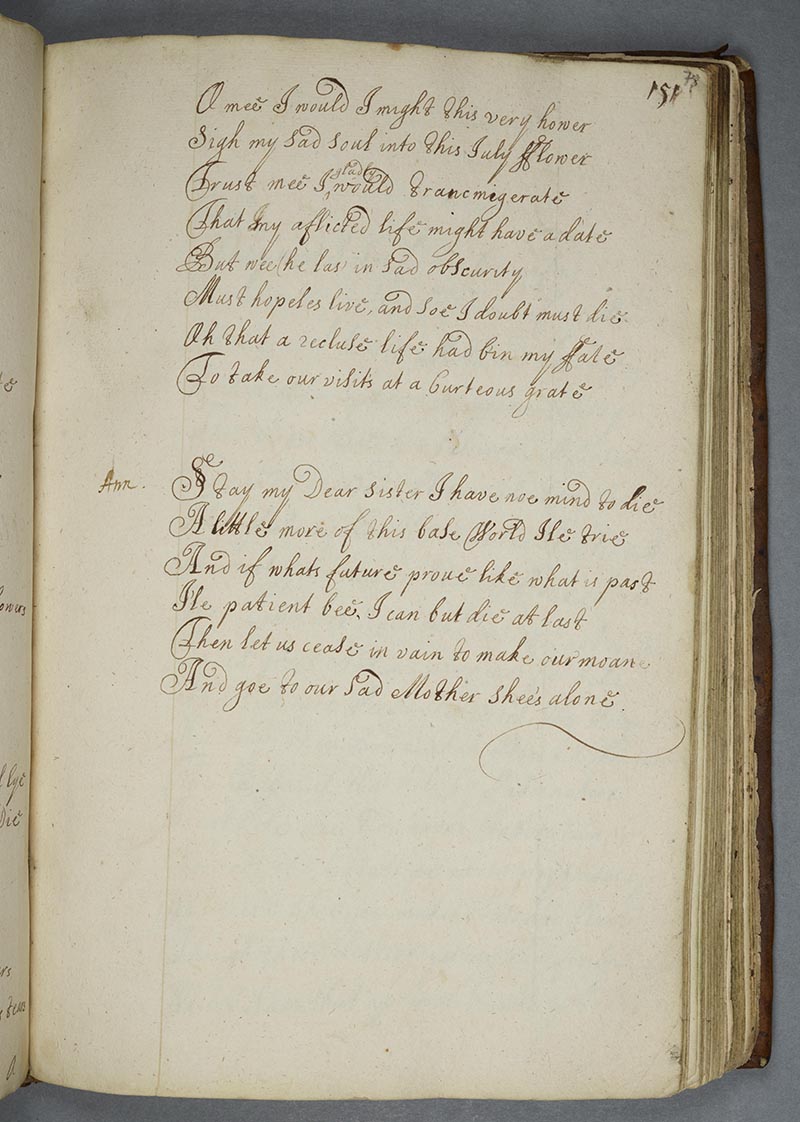 151
78
O mee I would I might this very hower
Sigh my sad soul into this July fflower
gladly
Trust mee I would trancmigerate
That my aflicted life might have a date
But wee he las in sad obscurity
Must hopeles live, and soe I doubt must die
Oh that a recluse life had bin my ffate
To take our visits at a Curteous grate
Ann.
Stay my Dear sister I have noe mind to die
A little more of this base World Ile trie
And if whats future prove like what is past
I'le patient bee, I can but die at last
Then let us cease in vain to make our moane
And goe to our sad Mother shee's alone.
owers
Lye
Die
ers
tears